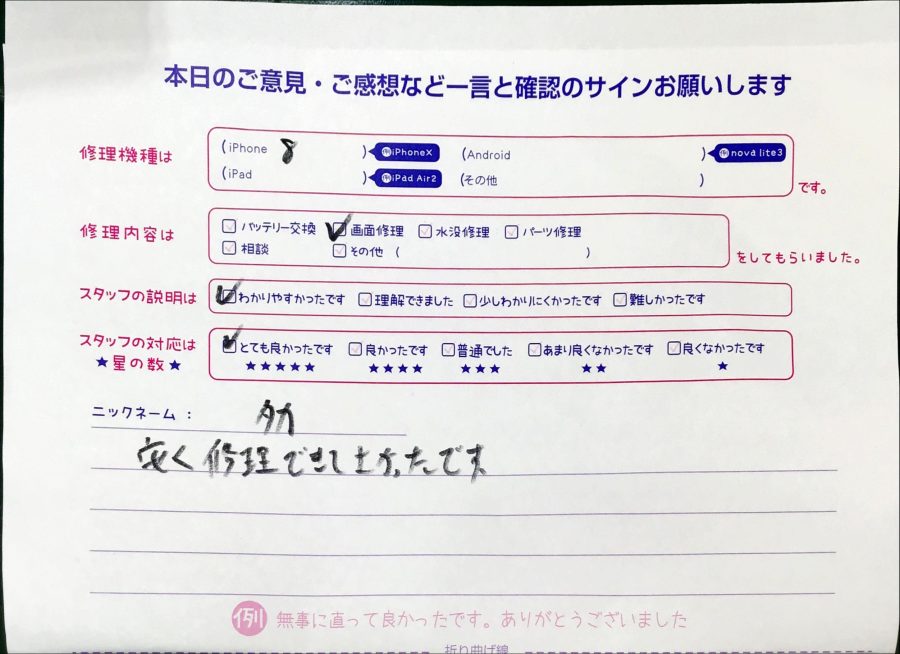 本日のご意見・ご感想など一言と確認のサインお願いします
修理機種は
(iPhone 8 ) 例iPhoneX (Android ) 例nova lite3
(iPad ) 例iPad Air2 (その他 )
です。
修理内容は
バッテリー交換 画面修理 水没修理 パーツ修理
相談 その他 ( )
をしてもらいました。
スタッフの説明は わかりやすかったです 理解できました 少しわかりにくかったです 難しかったです
スタッフの対応は とても良かったです 良かったです 普通でした あまり良くなかったです 良くなかったです
★星の数★ ★★★★★ ★★★★ ★★★ ★★ ★
ニックネーム： タカ
安く修理できてよかったです
例 無事に直って良かったです。ありがとうございました
折り曲げ線